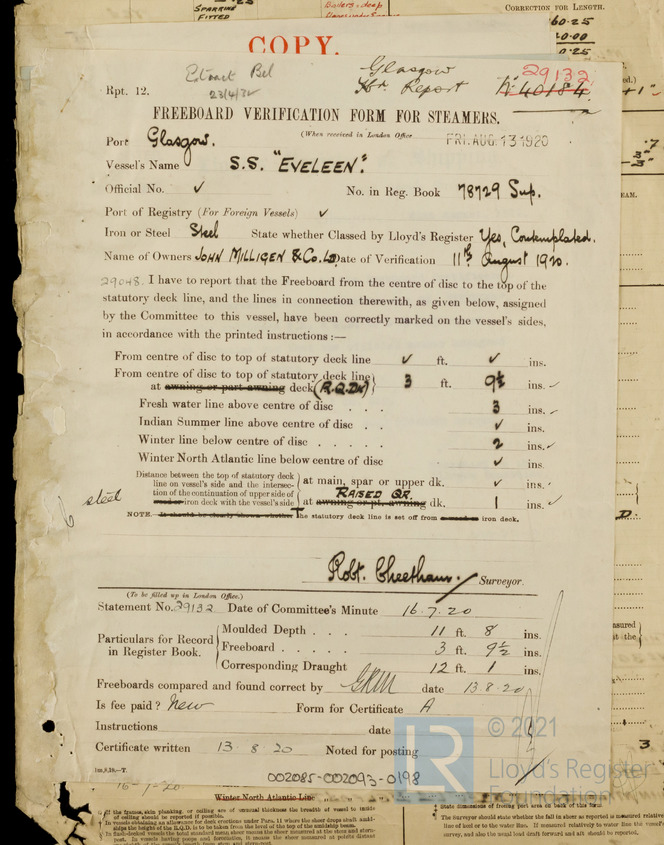 SPARRING
FITTED
CORRECTION FOR LENGTH.
60.25
0.25
COPY.
Extract Bel
23/4/32
Glasgow
Hbr Report
29132
No 40184
Rpt. 12.
FREEBOARD VERIFICATION FORM FOR STEAMERS.
(When received in London Office
FRI. AUG. 13 1920
Port Glasgow.
Vessel's Name S.S. "EVELEEN".
Official No. ✓ No. in Reg. Book 78729 Sup.
Port of Registry (For Foreign Vessels) ✓
Iron or Steel Steel State whether Classed by Lloyd's Register Yes, Contemplated.
Name of Owners JOHN MILLIGEN & Co. Ld Date of Verification 11th August 1920.
29048. I have to report that the Freeboard from the centre of disc to the top of the
statutory deck line, and the lines in connection therewith, as given below, assigned
by the Committee to this vessel, have been correctly marked on the vessel's sides,
in accordance with the printed instructions :—
From centre of disc to top of statutory deck line ✓ ft. ✓ ins.
From centre of disc to top of statutory deck line
at awning or part awning deck (R.Q.DK) 3 ft. 9½ ins. ✓
Fresh water line above centre of disc . . . 3 ins. ✓
Indian Summer line above centre of disc . . ✓ ins.
Winter line below centre of disc . . . . . 2 ins. ✓
Winter North Atlantic line below centre of disc ✓ ins.
Distance between the top of statutory deck
line on vessel's side and the intersec-
tion of the continuation of upper side of
wood or iron deck with the vessel's side
at main, spar or upper dk. ✓ ins. ✓
RAISED QR.
at awning or pt. awning dk. 1 ins. ✓
steel
NOTE. It should be clearly shown whether The statutory deck line is set off from wood or iron deck.
Robt. Cheetham. Surveyor.
(To be filled up in London Office.)
Statement No. 29132 Date of Committee's Minute 16.7.20
Particulars for Record
in Register Book.
Moulded Depth . . . 11 ft. 8 ins.
Freeboard . . . . . 3 ft. 9½ ins.
Corresponding Draught 12 ft. 1 ins.
Freeboards compared and found correct by GRM date 13.8.20
Is fee paid? New Form for Certificate A
Instructions date
Certificate written 13 8 20 Noted for posting
002085-002093-0198
© 2021
Lloyd's Register
Foundation
LR
16-7-20
Winter North Atlantic Line